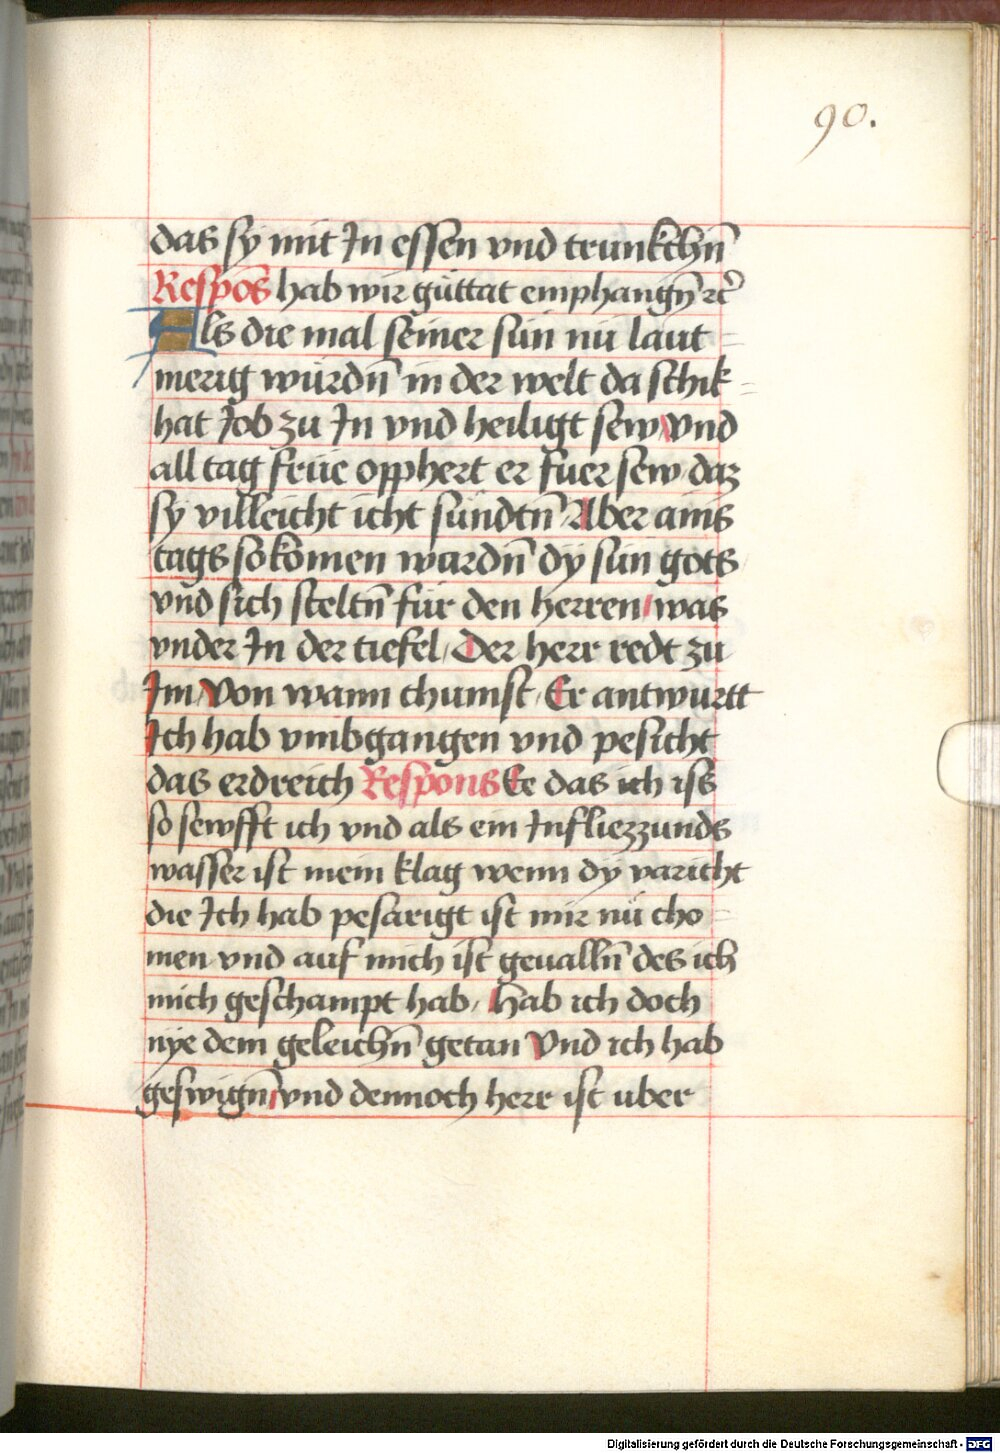 90.
das sy mit In essen vnd trunkchn̄
Respōs hab wir gůttat emphangn̄ ꝛc̄
Als die mal seiner sün nü laut
merig würdn̄ in der welt da schik
hat Job zu In vnd heiligt sew vnd
all tag früe opphert er fuer sew daz
sy villeicht icht sündtn̄ Aber ains
tags so komen wardn̄ dy sün gots
vnd sich steltn̄ für den herren was
vnder In der tiefel Der herr redt zu
Im Von wann chumst Er antwurtt
Ich hab vmbgangen vnd pesicht
das erdreich Respons Ee das ich iss
so sewfft ich vnd als ein Infliezzunds
wasser ist mein klag wenn dy varicht
die Ich hab pesarigt ist mir nü cho
men vnd auf mich ist geualln̄ des ich
mich geschampt hab hab ich doch
nye dem geleichn̄ getan Vnd ich hab
geswign̄ vnd dennoch herr ist uber
Digitalisierung gefördert durch die Deutsche Forschungsgemeinschaft - DFG